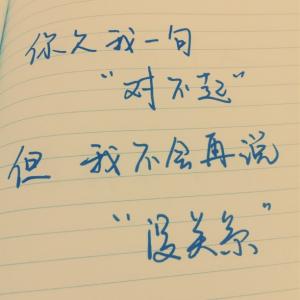 你久我一句
"对不起"
但 我不会再说
"没关系"